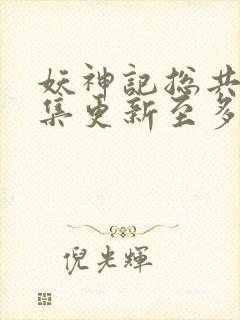 妖神記総共
集更新至多
倪光輝